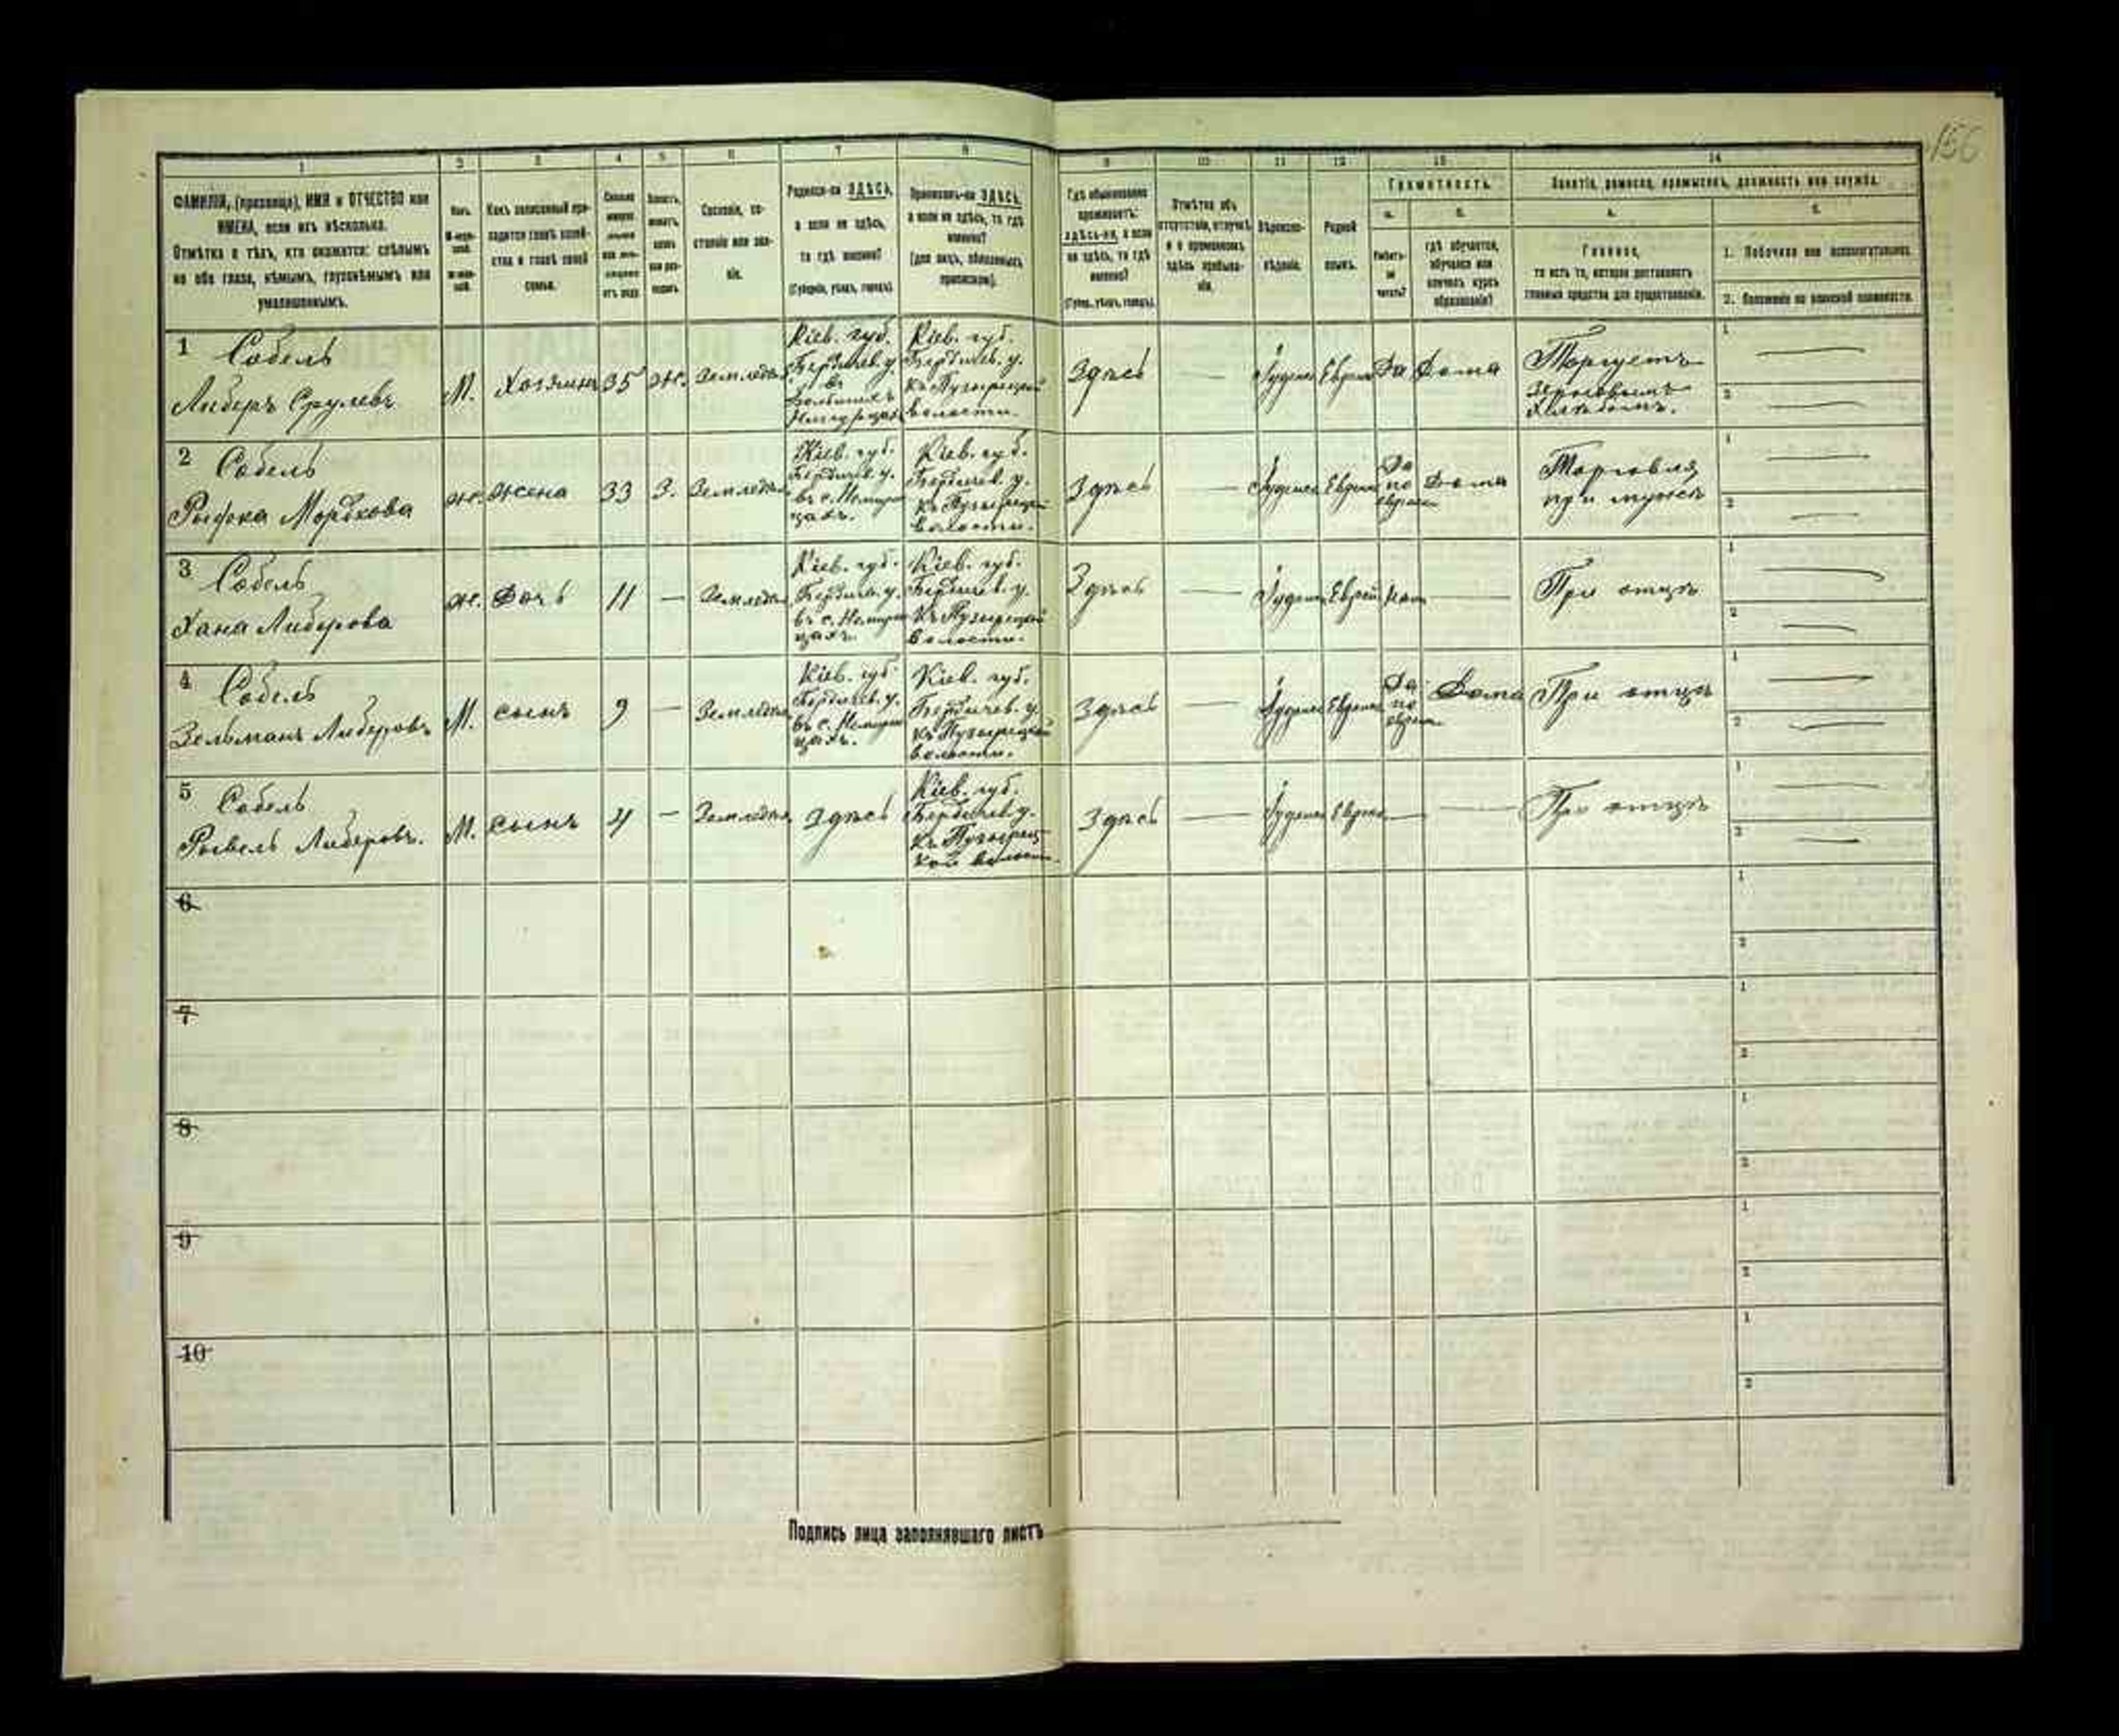 156
1 2 3 4 5 6 7 8 9 10 11 12 13 14
ФАМИЛІЯ, (прозвище), ИМЯ и ОТЧЕСТВО или
ИМЕНА, если ихъ нѣсколько.
Отмѣтка о тѣхъ, кто окажется: слѣпымъ
на оба глаза, нѣмымъ, глухонѣмымъ или
умалишеннымъ.
Полъ.
М-муж-
ской.
Ж-жен-
скій.
Какъ записанный при-
ходится главѣ хозяй-
ства и главѣ своей
семьи.
Сословіе, со-
стояніе или зва-
ніе.
Родился-ли ЗДѢСЬ,
а если не здѣсь,
то гдѣ именно?
(Губернія, уѣздъ, городъ).
Приписанъ-ли ЗДѢСЬ,
а если не здѣсь, то гдѣ
именно?
(для лицъ, обязанныхъ
припискою).
Гдѣ обыкновенно
проживаетъ:
здѣсь-ли, а если
не здѣсь, то гдѣ
именно?
(Губер., уѣздъ, городъ).
Отмѣтка объ
отсутствіи, отлучкѣ
и о временномъ
здѣсь пребыва-
ніи.
Вѣроиспо-
вѣданіе.
Родной
языкъ.
Грамотность.
а. б.
Умѣетъ-
ли
читать?
гдѣ обучается,
обучался или
кончилъ курсъ
образованія?
Занятіе, ремесло, промыселъ, должность или служба.
а. б.
Главное,
то есть то, которое доставляетъ
главныя средства для существованія.
1. Побочное или вспомогательное.
2. Положеніе по воинской повинности.
1 Собель
Либеръ Срулевъ
М. Хозяинъ 35 Ж.
Кіев. губ.
Бердичев. у.
Кіев. губ.
Бердичев. у.
къ Пузырецкой
волости.
Здѣсь — Да Дома
Торгуетъ
хлѣбомъ.
1 —
2 —
2 Собель
Рыфка Мордкова
ж. жена 33 З.
Кіев. губ.
Бердичев. у.
въ с. Немирин
цахъ.
Кіев. губ.
Бердичев. у.
къ Пузырецкой
волости.
Здѣсь —
Да
по
Дома
Торговля
при мужѣ
1 —
2 —
3 Собель
Хана Либерова
ж. Дочь 11 —
Кіев. губ.
Бердичев. у.
въ с. Немирин
цахъ.
Кіев. губ.
Бердичев. у.
къ Пузырецкой
волости.
Здѣсь — —
При отцѣ
1 —
2 —
4 Собель
Зельманъ Либеровъ
М. сынъ 9 —
Кіев. губ.
Бердичев. у.
въ с. Немирин
цахъ.
Кіев. губ.
Бердичев. у.
къ Пузырецкой
волости.
Здѣсь —
Да
по
Дома
При отцѣ
1 —
2 —
5 Собель
Рывель Либеровъ.
М. сынъ 4 — Здѣсь
Кіев. губ.
Бердичев. у.
къ Пузырец-
кой волости.
Здѣсь — — —
При отцѣ
1 —
2 —
6
1
2
7
1
2
8
1
2
9
1
2
10
1
2
Подпись лица заполнявшаго листъ